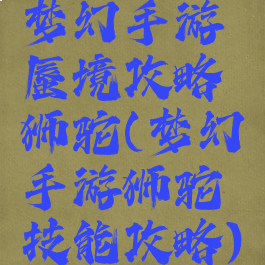 梦幻手游
蜃境攻略
狮驼(梦幻
手游狮驼
技能攻略)